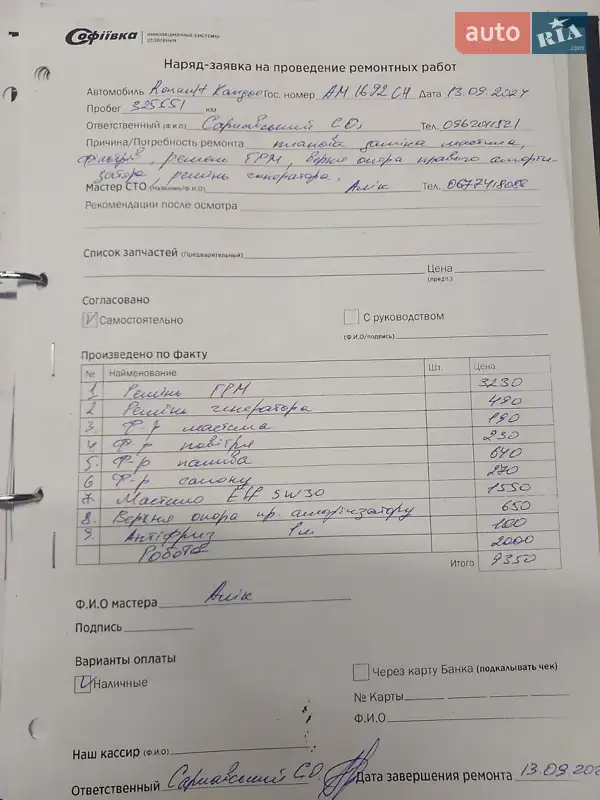 auto RIA .com
Софіївка ИННОВАЦИОННЫЕ СИСТЕМЫ ОТОПЛЕНИЯ
Наряд-заявка на проведение ремонтных работ
Автомобиль Renault Kangoo Гос. номер АМ 1692 СН Дата 13.09.2024
Пробег 325651 км
Ответственный (Ф.И.О) С.О. Тел.
Причина/Потребность ремонта планова заміна мастила,
фільтрів, ремонт ГРМ, верхня опора правого аморти-
затора, ремінь генератора.
Мастер СТО (Название/Ф.И.О) Алік Тел.
Рекомендации после осмотра
Список запчастей (Предварительный)
Цена
(предп.)
Согласовано
V Самостоятельно С руководством
(Ф.И.О/подпись)
Произведено по факту
№ Наименование Шт. Цена
1 Ремінь ГРМ 3230
2 Ремінь генератора 490
3. Ф-р мастила 190
4. Ф-р повітря 230
5. Ф-р палива 640
6 Ф-р салону 270
7. Мастило Elf 5W30 1550
8. Верхня опора пр. амортизатору 650
9. Антіфриз 1л 100
Робота 2000
Итого 9350
Ф.И.О мастера Алік
Подпись
Варианты оплаты
V Наличные Через карту Банка (подкалывать чек)
№ Карты
Ф.И.О.
Наш кассир (Ф.И.О)
Ответственный С.О. Дата завершения ремонта 13.09.202